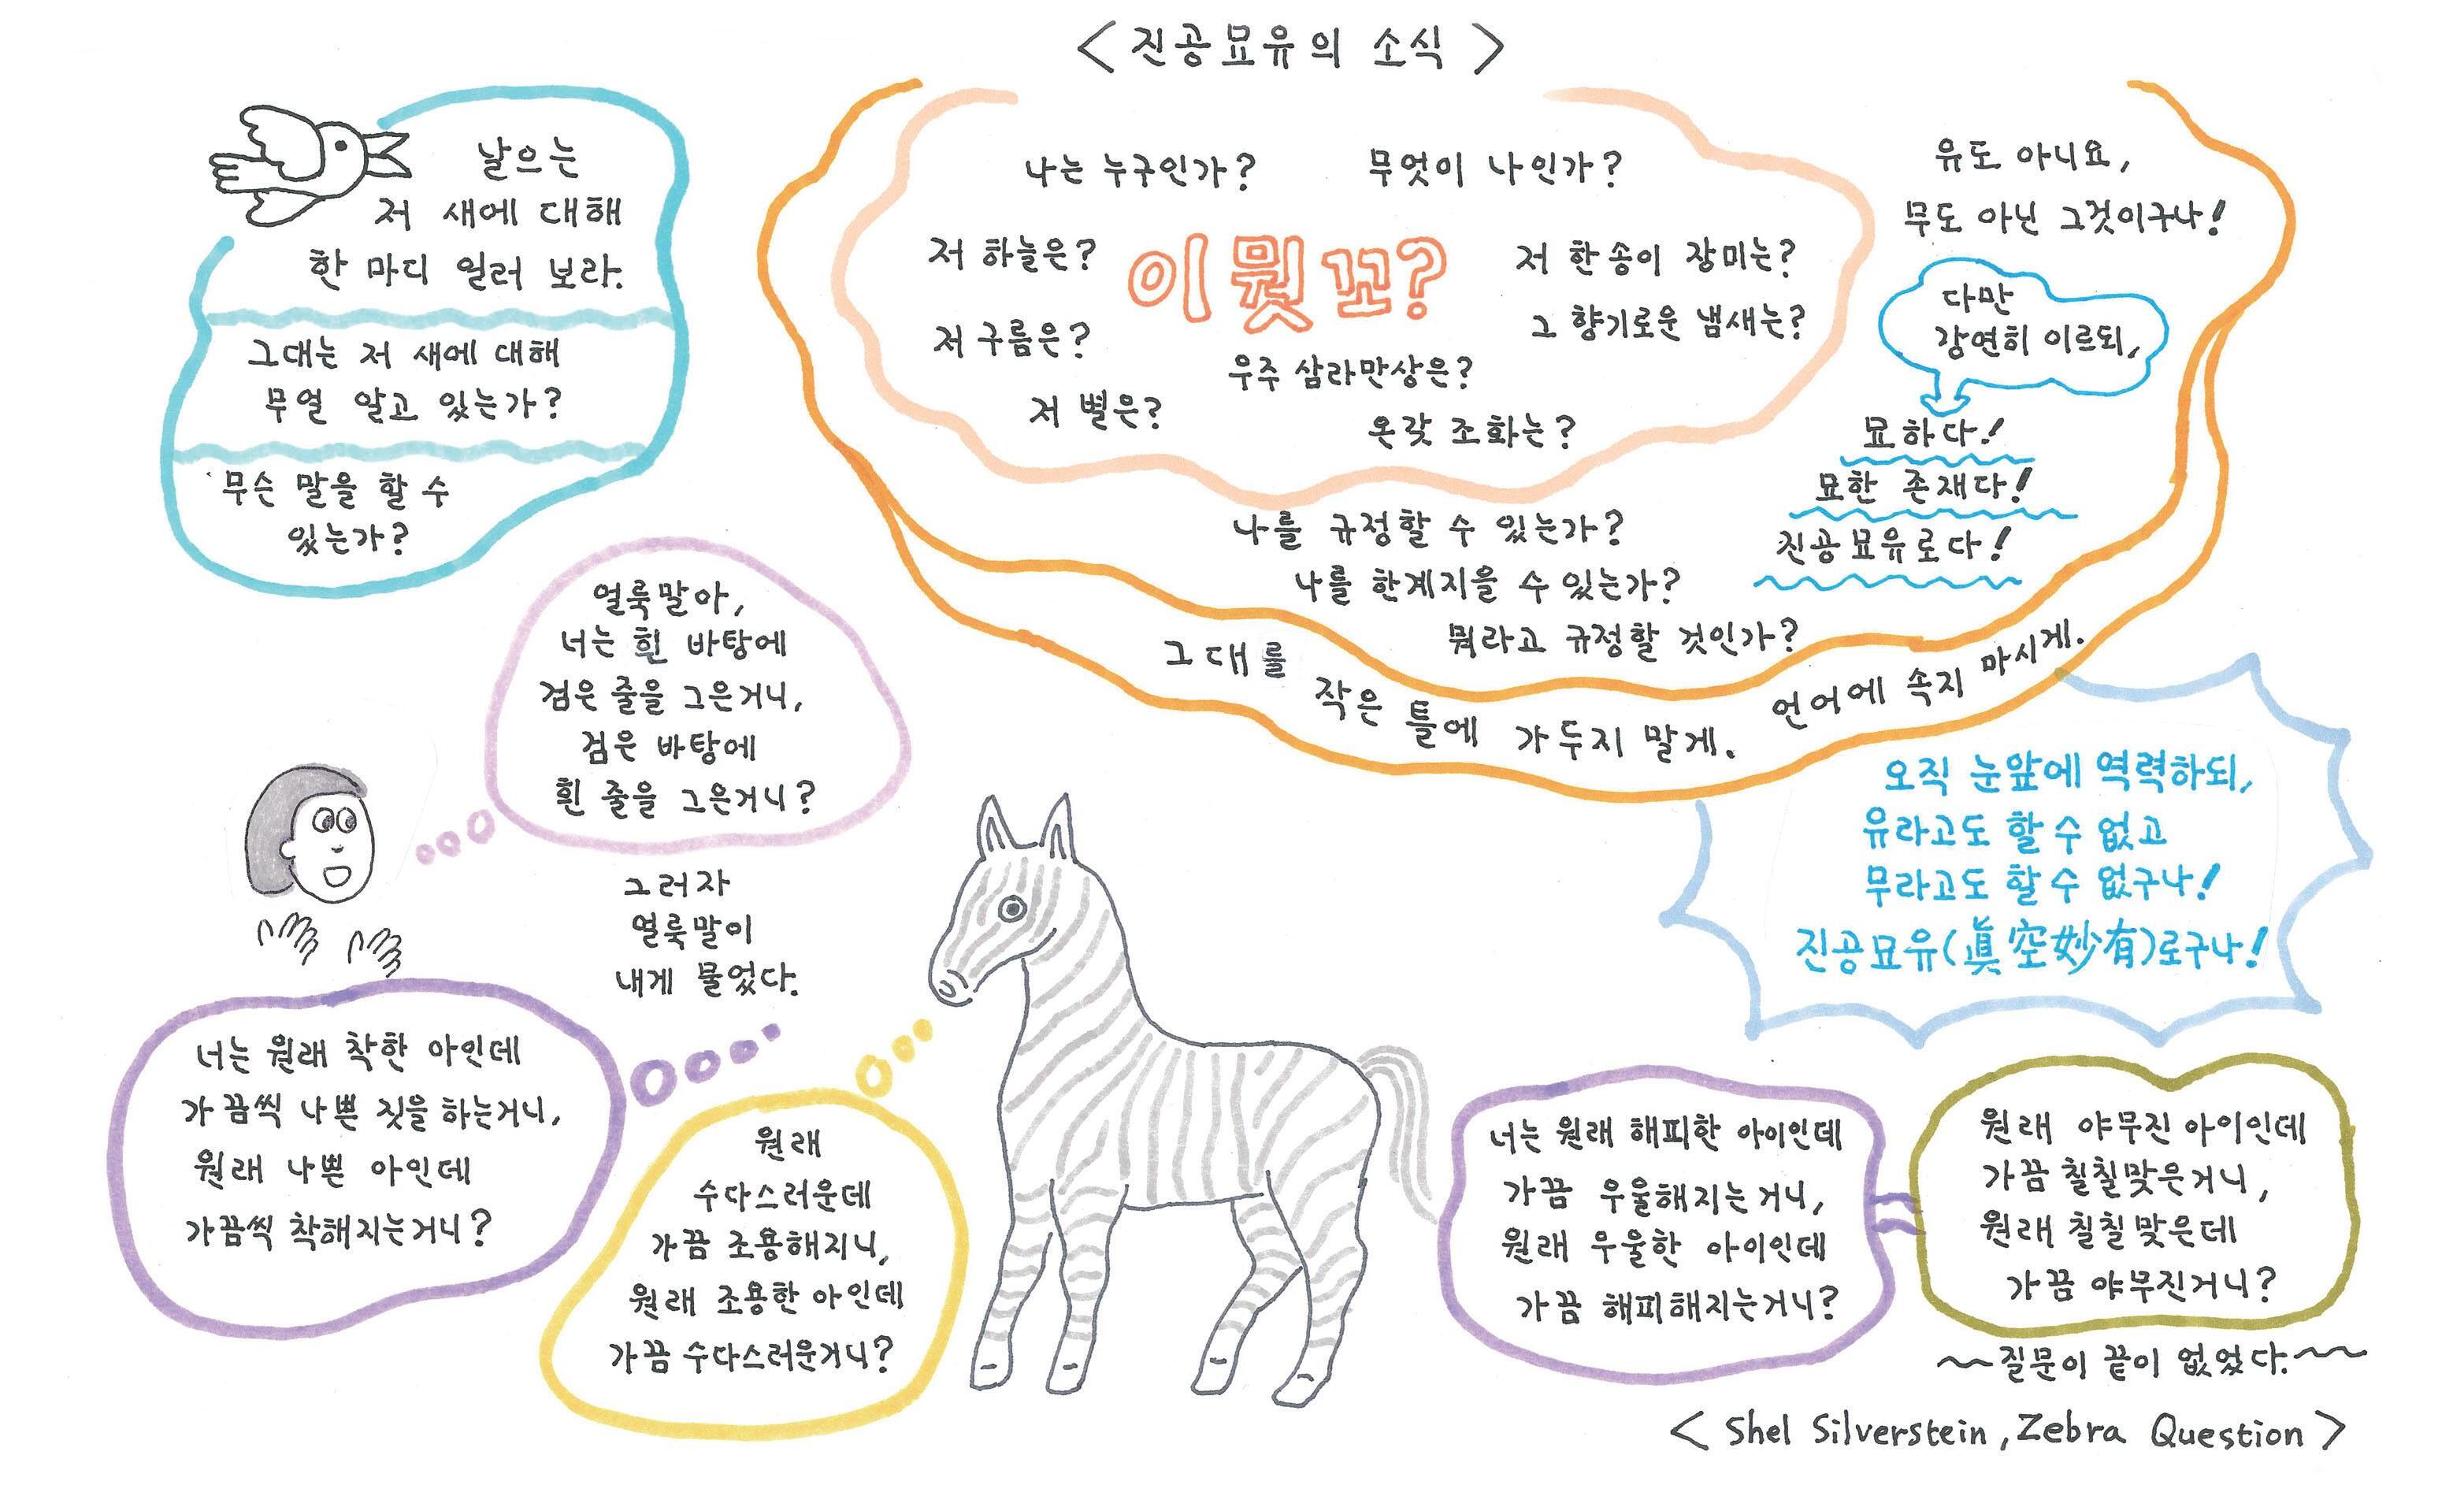 < 진공묘유의 소식 >
날으는
저 새에 대해
한 마디 일러 보라.
그대는 저 새에 대해
무얼 알고 있는가?
무슨 말을 할 수
있는가?
나는 누구인가? 무엇이 나인가?
저 하늘은?
이 뭣꼬?
저 한 송이 장미는?
저 구름은?
그 향기로운 냄새는?
우주 삼라만상은?
저 별은?
온갖 조화는?
나를 규정할 수 있는가?
나를 한계지을 수 있는가?
뭐라고 규정할 것인가?
유도 아니요,
무도 아닌 그것이구나!
다만
강연히 이르되,
묘하다!
묘한 존재다!
진공묘유로다!
그대를 작은 틀에 가두지 말게. 언어에 속지 마시게.
오직 눈앞에 역력하되,
유라고도 할 수 없고
무라고도 할 수 없구나!
진공묘유(眞空妙有)로구나!
얼룩말아,
너는 흰 바탕에
검은 줄을 그은거니,
검은 바탕에
흰 줄을 그은거니?
그러자
얼룩말이
내게 물었다.
너는 원래 착한 아인데
가끔씩 나쁜 짓을 하는거니,
원래 나쁜 아인데
가끔씩 착해지는거니?
원래
수다스러운데
가끔 조용해지니,
원래 조용한 아인데
가끔 수다스러운거니?
너는 원래 해피한 아이인데
가끔 우울해지는거니,
원래 우울한 아이인데
가끔 해피해지는거니?
원래 야무진 아이인데
가끔 칠칠맞은거니,
원래 칠칠맞은데
가끔 야무진거니?
~질문이 끝이 없었다.~
< Shel Silverstein, Zebra Question >